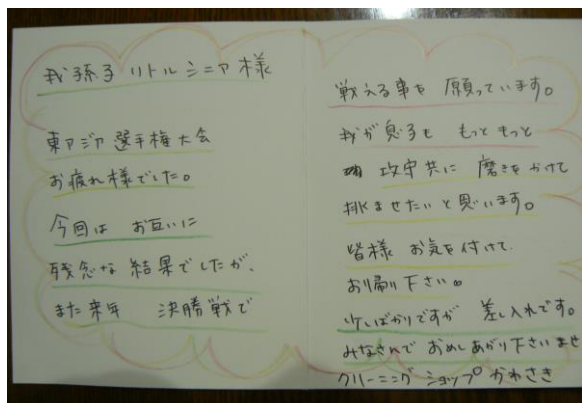 我孫子リトルシニア様
東アジア選手権大会
お疲れ様でした。
今回は お互いに
残念な結果でしたが、
また来年 決勝戦で
戦える事を 願っています。
我が息子も もっともっと
攻守共に 磨きをかけて
挑ませたいと思います。
皆様 お気を付けて、
お帰り下さい。
少しばかりですが 差し入れです。
みなさんで おめしあがり下さいませ
クリーニングショップかわさき